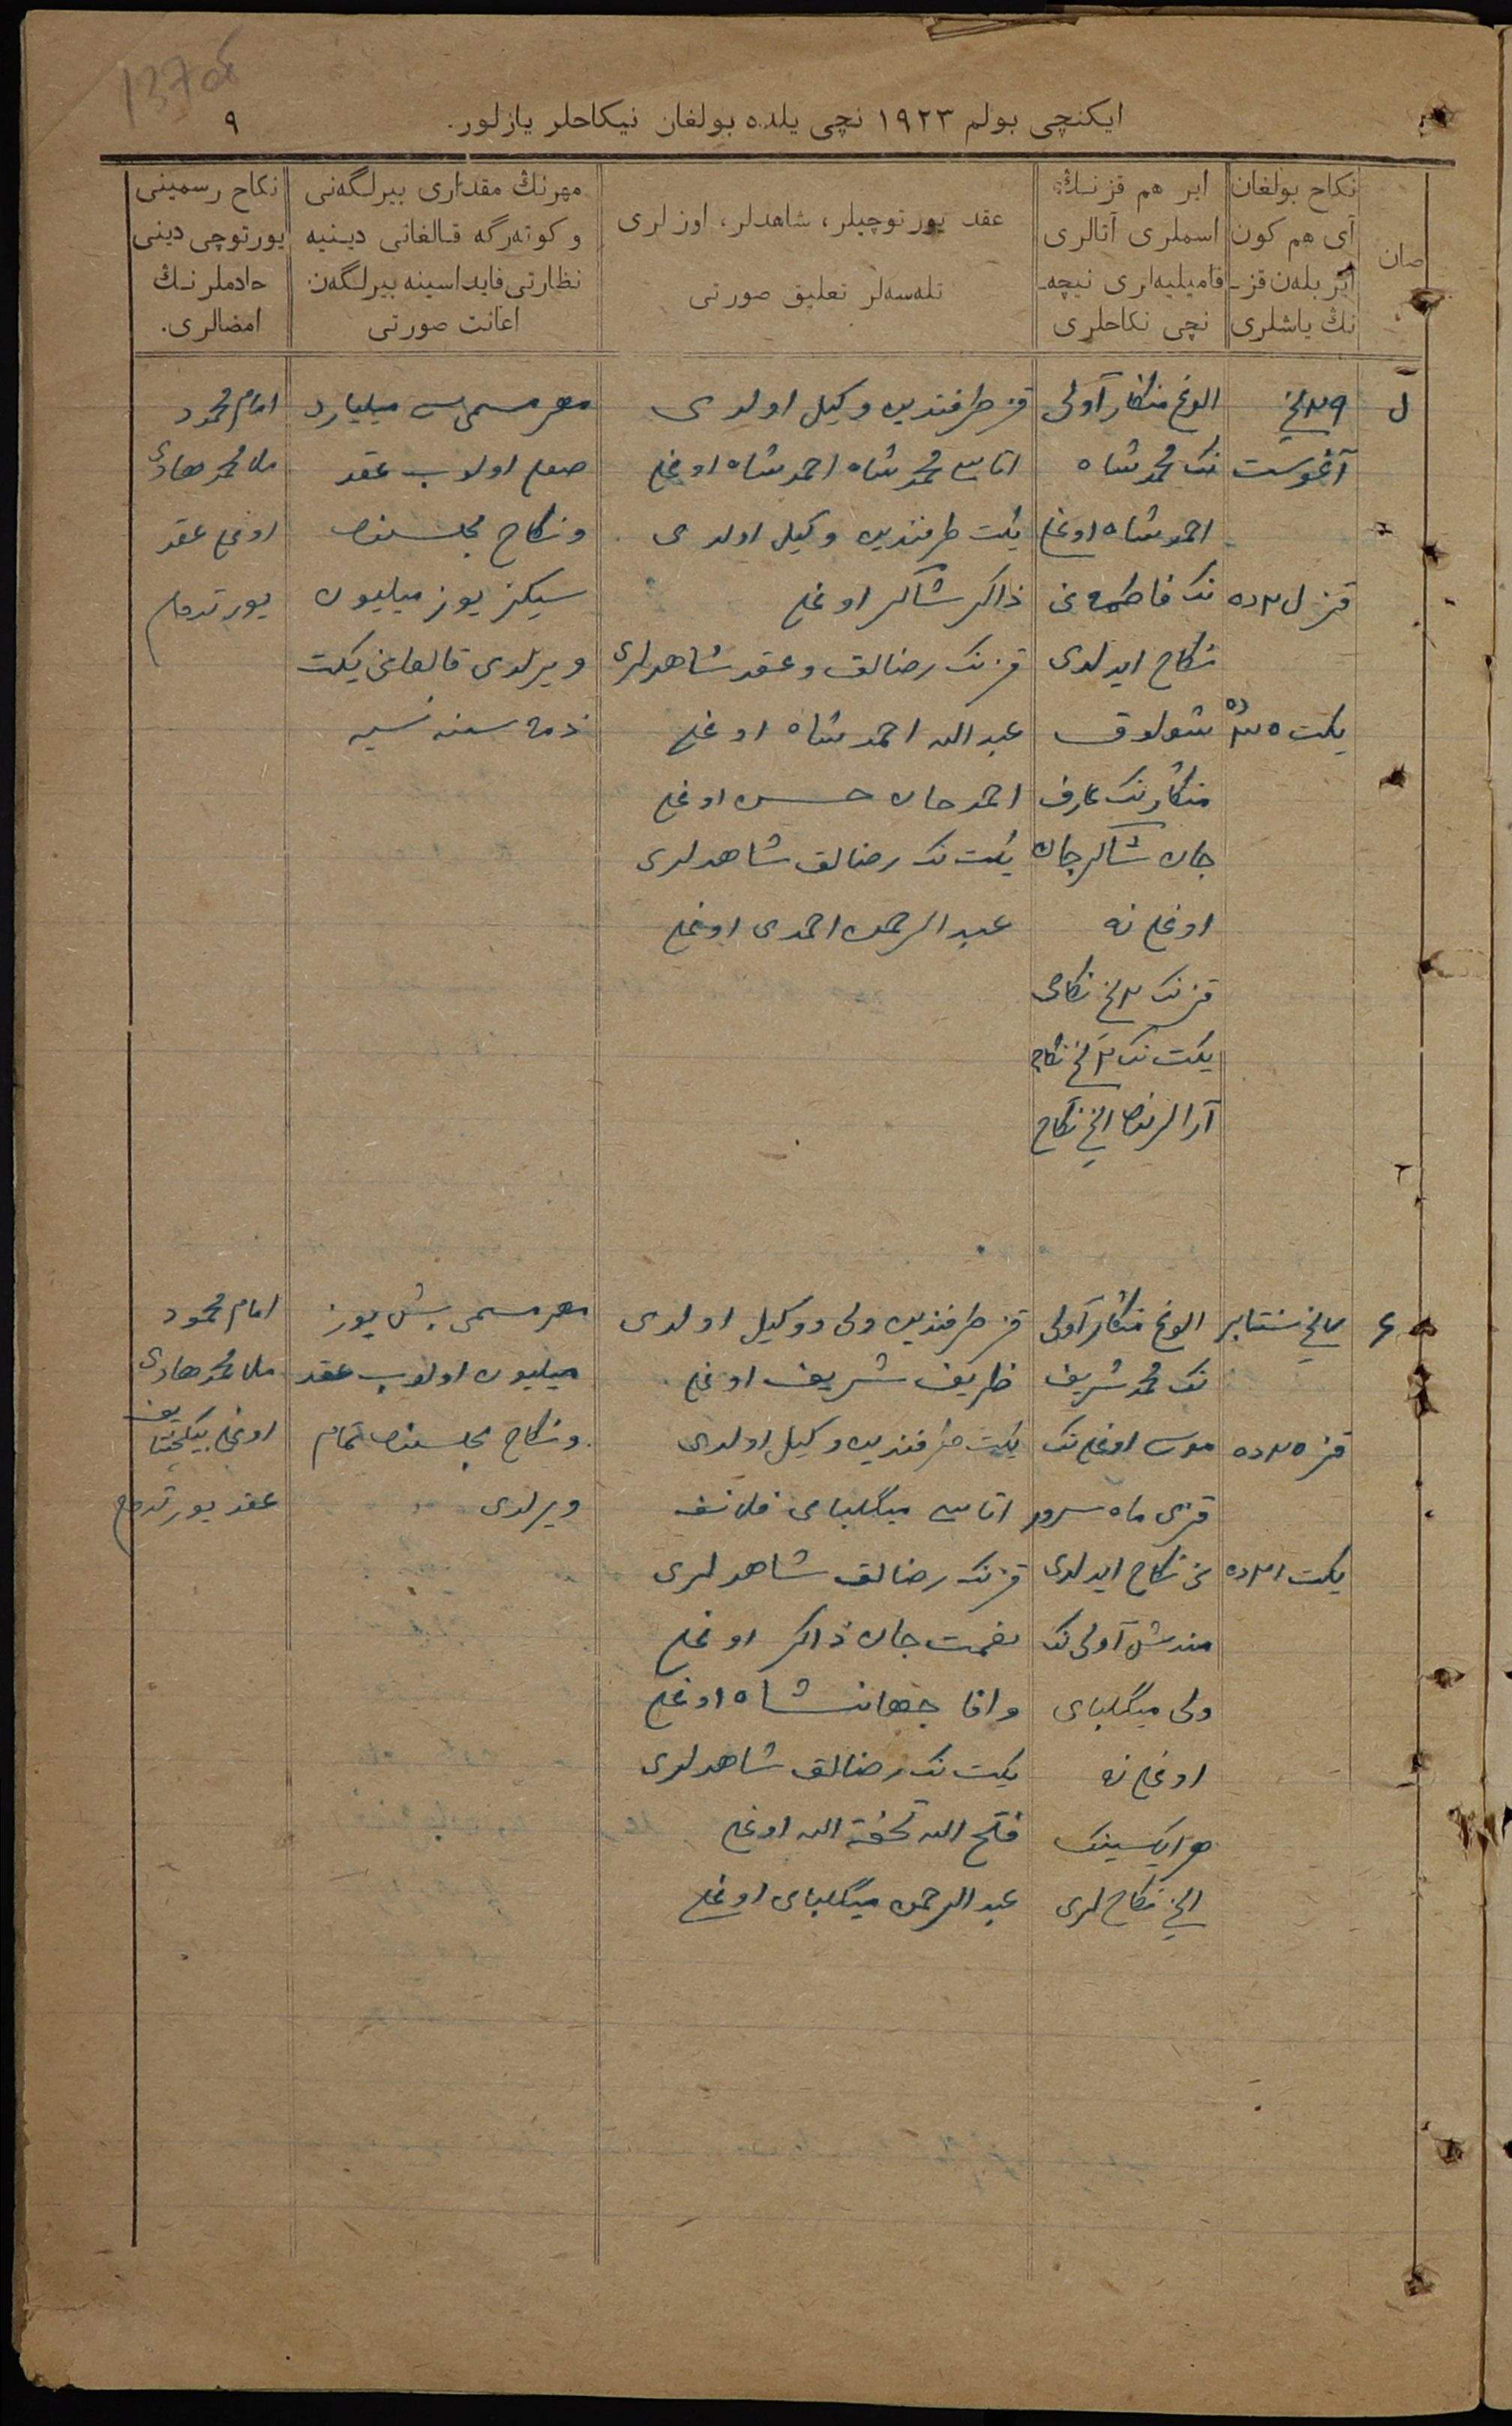 137об
ایکنچی بولم ١٩٢٣ نچی یلده بولغان نیکاحلر یازلور.
٩
صان
نکاح بولغان
آی هم کون
ایر بله‌ن قز-
نڭ یاشلری
ایر هم قزنڭ
اسملری آتالری
فامیلیه‌لری نیچه-
نچی نکاحلری
عقد یورتوچیلر، شاهدلر، اوزلری
تله‌سه‌لر تعلیق صورتی
مهرنڭ مقداری بیرلگه‌نی
و کوته‌رگه قالغانی دینیه
نظارتی فایداسینه بیرلگه‌ن
اعانت صورتی
نکاح رسمینی
یورتوچی دینی
خادملرنڭ
امضالری.
آغوست
قز
یکت
الوغ منگار آولی
نک محمد شاه
احمد شاه اوغلی
نک فاطمه نی
نکاح ایدلدی
منگار نک عارف
جان شاکر جان
اوغلی نه
قزنک نکاحی
یکت نک نکاحی
قز طرفندین وکیل اولدی
اتاسی محمد شاه احمد شاه اوغلی
یکت طرفندین وکیل اولدی
ذاکر شاکر اوغلی
قزنک رضالق و عقد شاهدلری
عبد الله احمد شاه اوغلی
احمد جان حسن اوغلی
یکت نک رضالق شاهدلری
عبد الرحمن احمدی اوغلی
مهر مسمی میلیارد
اولوب عقد
و نکاح مجلسنده
سیکز یوز میلیون
ویرلدی قالغانی یکت
ذمه سنه نسیه
امام محمود
ملا محمد هادی
اوغلی عقد
یورتدم
٤
سنتابر
قز
یکت
الوغ منگار آولی
نک محمد شریف
موسی اوغلی نک
قزی ماه سرور
نی نکاح ایدلدی
آولی نک
ولی میگلبای
اوغلی نه
هر ایکسینک
نکاح لری
قز طرفندین ولی و وکیل اولدی
ظریف شریف اوغلی
یکت طرفندین وکیل اولدی
اتاسی میگلبای
قزنک رضالق شاهدلری
نعمت جان ذاکر اوغلی
وافا جهانشاه اوغلی
یکت نک رضالق شاهدلری
فتح الله تحفة الله اوغلی
عبد الرحمن میگلبای اوغلی
مهر مسمی بش یوز
میلیون اولوب عقد
و نکاح مجلسنده تمام
ویرلدی
امام محمود
ملا محمد هادی
اوغلی
عقد یورتدم